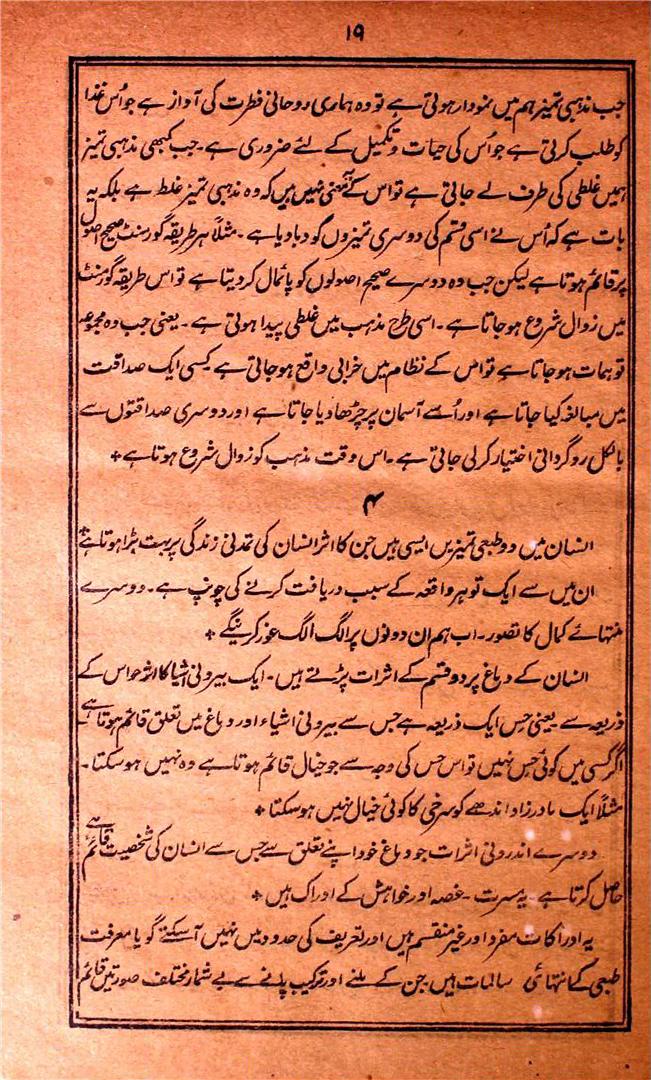 ۱۹
جب مذہبی تمیز ہم میں نمودار ہوتی ہے تو وہ ہماری روحانی فطرت کی آواز ہے جو اُس غذا
کو طلب کرتی ہے جو اُس کی حیات و تکمیل کے لئے ضروری ہے۔ جب کبھی مذہبی تمیز
ہمیں غلطی کی طرف لے جاتی ہے تو اس کے یہ معنی نہیں ہیں کہ وہ مذہبی تمیز غلط ہے بلکہ یہ
بات ہے کہ اُس نے اسی قسم کی دوسری تمیزوں کو دبا دیا ہے۔ مثلاً ہر طریقہ گورنمنٹ صحیح اصول
پر قائم ہوتا ہے لیکن جب وہ دوسرے صحیح اصولوں کو پائمال کر دیتا ہے تو اس طریقہ گورنمنٹ
میں زوال شروع ہو جاتا ہے۔ اسی طرح مذہب میں غلطی پیدا ہوتی ہے۔ یعنی جب وہ مجموعہ
توہمات ہو جاتا ہے تو اُس کے نظام میں خرابی واقع ہو جاتی ہے کیسی ایک صداقت
میں مبالغہ کیا جاتا ہے اور اُسے آسمان پر چڑھا دیا جاتا ہے اور دوسری صداقتوں سے
بالکل روگردانی اختیار کر لی جاتی ہے۔ اس وقت مذہب کو زوال شروع ہوتا ہے +
۴
انسان میں دو طبعی تمیزیں ایسی ہیں جن کا اثر انسان کی تمدنی زندگی پر بہت بڑا ہوتا ہے +
ان میں سے ایک تو ہر واقعہ کے سبب دریافت کرنے کی چونپ ہے۔ دوسرے
منتہائے کمال کا تصور۔ اب ہم ان دونوں پر الگ الگ غور کرینگے +
انسان کے دماغ پر دو قسم کے اثرات پڑتے ہیں۔ ایک بیرونی اشیا کا اثر حواس کے
ذریعہ سے یعنی حِس ایک ذریعہ ہے جس سے بیرونی اشیاء اور دماغ میں تعلق قائم ہوتا ہے
اگر کسی میں کوئی حِس نہیں تو اس حس کی وجہ سے جو خیال قائم ہوتا ہے وہ نہیں ہو سکتا۔
مثلاً ایک مادر زاد اندھے کو سرخی کا کوئی خیال نہیں ہو سکتا +
دوسرے اندرونی اثرات جو دماغ خود اپنے تعلق سے جس سے انسان کی شخصیت قائم ہے
حاصل کرتا ہے۔ یہ مسرت۔ غصہ اور خواہش کے ادراک ہیں +
یہ ادراکات مفرد اور غیر منقسم ہیں اور تعریف کی حدود میں نہیں آ سکتے گویا معرفت
طبعی کے انتہائی سالمات ہیں جن کے ملنے اور ترکیب پانے سے بے شمار مختلف صورتیں قائم